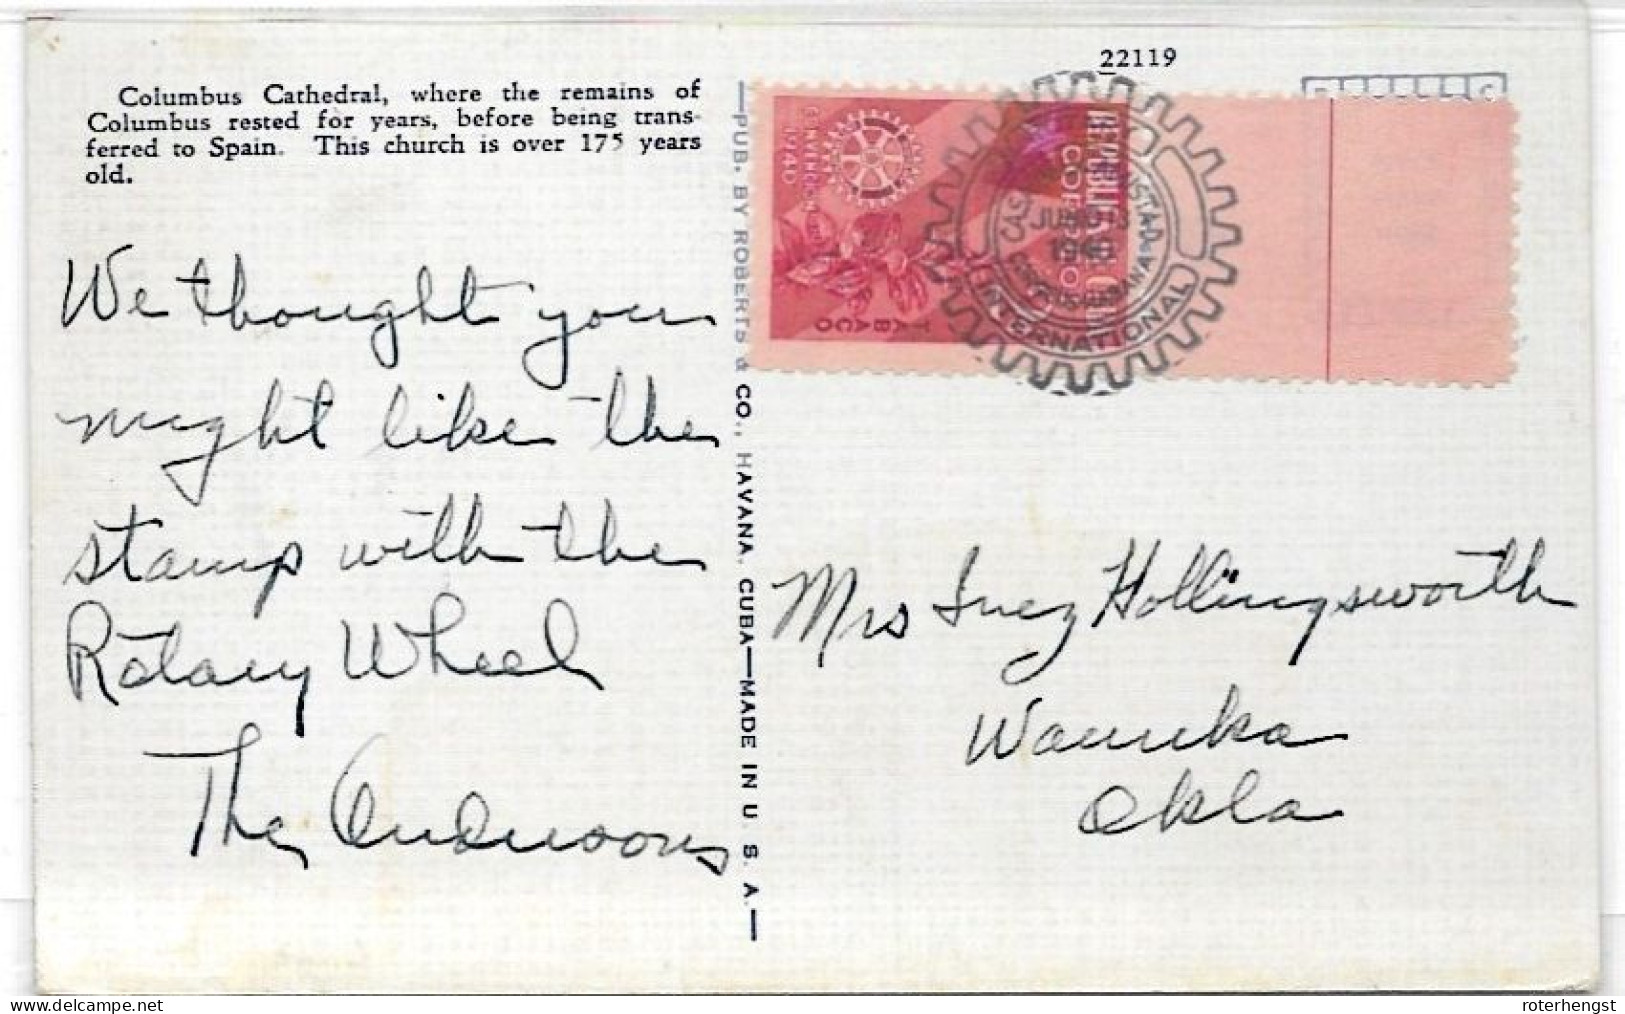 22119
Columbus Cathedral, where the remains of
Columbus rested for years, before being trans-
ferred to Spain. This church is over 175 years
old.
We thought you
might like the
stamp with the
Rotary Wheel
The Andersons
PUB. BY ROBERTS & CO., HAVANA, CUBA—MADE IN U. S. A.
REPUBLICA
CORREO
1940
TABACO
JUNIO 13
1940
INTERNATIONAL
Mrs Inez Hollingsworth
Waurika
Okla
delcampe.net
roterhengst